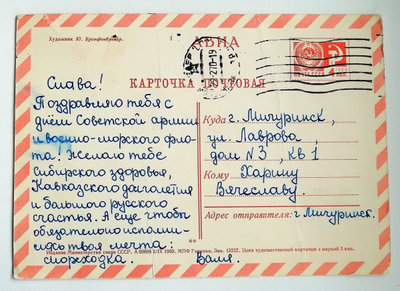 Художник Ю. Бронфенбренер.
АВИА
ПОЧТА СССР
4 КОП
КАРТОЧКА ПОЧТОВАЯ
Слава!
Поздравляю тебя с
днём Советской армии
и военно-морского фло-
та! Желаю тебе
сибирского здоровья,
Кавказского долголетия
и большого русского
счастья. А ещё чтобы
обязательно исполни-
лась твоя мечта:
Валя.
Куда г. Мичуринск,
ул. Лаврова,
дом N3, кв. 1
Кому Харину
Вячеславу.
Адрес отправителя: г. Мичуринск.
Издание Министерства связи СССР. 1969. МПФ Гознака. Зак. Цена художественной карточки с маркой 5 коп.